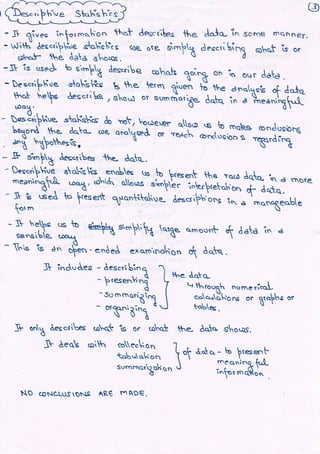 3
Descriptive Statistics
- It gives information that describes the data in some manner.
- With descriptive statistics we are simply describing what is or
what the data shows.
- It is used to simply describe whats going on in our data.
- Descriptive statistics is the term given to the analysis of data
that helps describe, show or summarize data in a meaningful
way.
- Descriptive statistics do not, however allow us to make conclusions
beyond the data we analysed or reach conclusions regarding
any hypothesis.
- It simply describes the data.
- Descriptive statistics enables us to present the raw data in a more
meaningful way, which allows simpler interpretation of data.
- It is used to present quantitative descriptions in a manageable
form
- It helps us to simply simplify large amount of data in a
sensible way
- This is an open-ended examination of data.
It includes - describing
- presenting
- summarizing
- organizing
the data
↳ through numerical
calculations or graphs or
tables.
It only describes what is or what the data shows.
It deals with collection
tabulation
summarization
of data - to present
meaningful
information.
NO CONCLUSIONS ARE MADE.